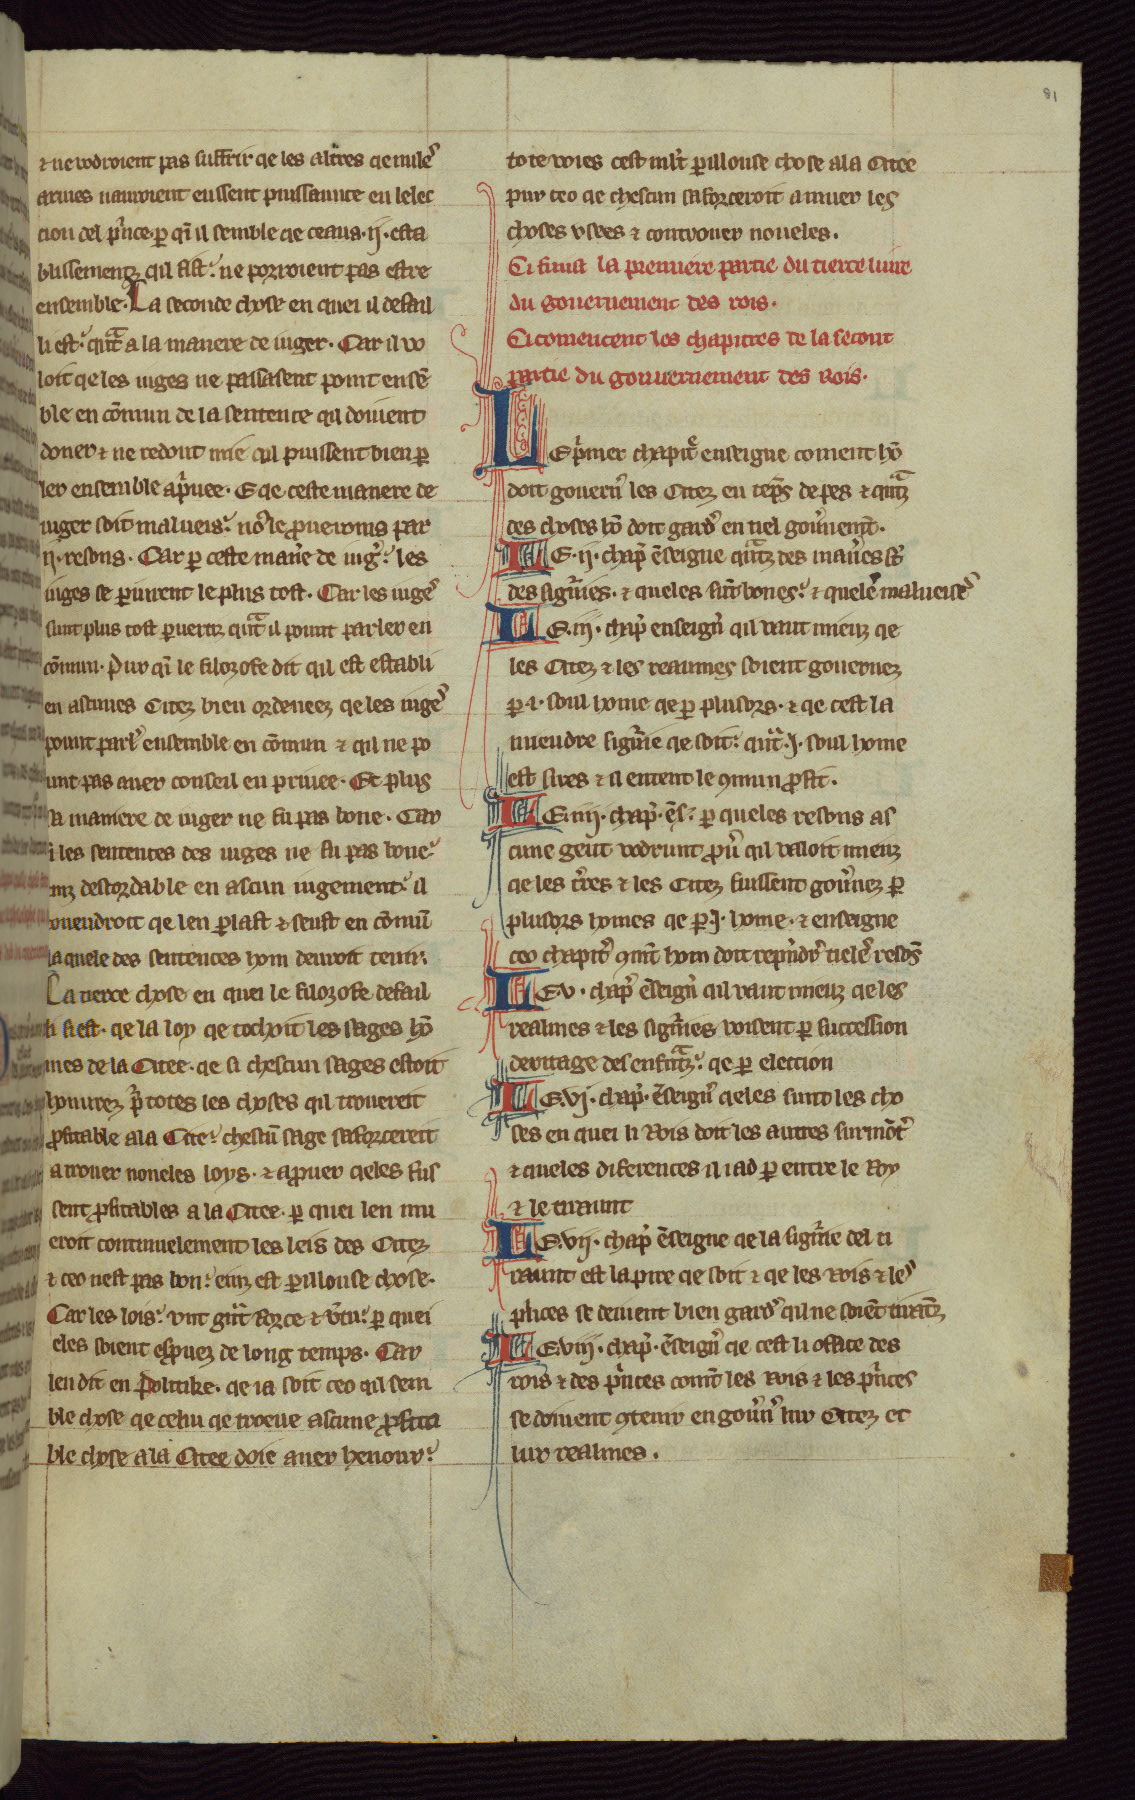 81
⁊ ne vodroient pas suffrir qe les altres qe nule
armes nauroient eussent puissaunce en lelec
cion del pince. p qi il semble qe ceaus .ij. esta
blissementz qil fist. ne porroient pas estre
ensemble. La seconde chose en quei il defail
li est. qnt a la manere de iuger. Car il vo
loit qe les iuges ne passasent point ensē
ble en cōmun de la sentence qil doiuent
doner ⁊ ne redout mie qil puissent bien p
ler ensemble apuee. E qe ceste manere de
iuger soit malueis. nos le proueroms par
ij. resons. Car p ceste manie de iug. les
iuges se puirent le plus tost. Car les iuges
sunt plus tost puertiz qnt il pount parler en
cōmun. Pur qi le filozofe dit qil est establi
en ascunes Citez bien ordeneez qe les iuges
pount parl ensemble en cōmun ⁊ qil ne po
unt pas auer conseil en priuee. Et plus
la maniere de iuger ne fu pas bone. Car
i les sentences des iuges ne fu pas bone.
mz descordable en ascun iugement. il
ouendroit qe len plast ⁊ seust en cōmū
la quele des sentences hom deuroit tenir.
La tierce chose en quei le filozofe defail
li si est. qe la loy qe tochoit les sages hō
mes de la Citee. qe si chescun sages estoit
honurez p totes les choses qil troueroit
profitable a la Cite. chescū sage saforcereit
a trouer noneles loys. ⁊ a prouer qeles fus
sent profitables a la Citee. p quei len mu
eroit continuelement les leis des Citez
⁊ ceo nest pas bon. einz est pillouse chose.
Car les lois. vnt gnt force ⁊ vtu. p quei
eles soient espuez de long temps. Car
len dit en Politike. qe ia soit ceo qil sem
ble chose qe celui qe troeue ascune profita
ble chose a la Citee doie auer henour.
tote voies cest mlt pillouse chose a la Citee
pur ceo qe chescun saforceroit a muer les
choses vsees ⁊ controuer noueles.
Ci finist la premiere partie du tierce liure
du gouernement des rois.
Ci comencent les chapitres de la secont
partie du gouuernement des rois.
LE pimer chapit enseigne coment hō
doit gouern les Citez en teps de pes ⁊ qntz
des choses hō doit gard en tiel gouiment.
LE .ij. chap ēseigne qntz des manes st
des signies. ⁊ queles sunt bones. ⁊ queles malueises
LE .iij. chap enseign qil vaut mieuz qe
les Citez ⁊ les reaumes soient gouernez
p .i. soul home qe p plusors. ⁊ qe cest la
mieudre signie qe soit. qnt .j. soul home
est sires ⁊ il entent le ꝯmun profit.
LE .iiij. chap. ēs. p queles resons as
cune gent vodrunt prou qil valoit mieuz
qe les tres ⁊ les Citez fuissent gouinez p
plusors homes qe p .j. home. ⁊ enseigne
ceo chapit ꝯmt hom doit repndr tieles resōs
LE .v. chap ēseign qil vaut mieuz qe les
realmes ⁊ les signies voisent p succession
deritage des enfantz. qe p eleccion
LE .vj. chap. ēseign qeles sunt les cho
ses en quei li Rois doit les autres surmōt
⁊ queles diferences il iad p entre le Roy
⁊ le tiraunt
LE .vij. chap ēseigne qe la signie del ti
raunt est la pire qe soit ⁊ qe les rois ⁊ les
pinces se deiuent bien gard qil ne soiēt tirantz
LE .viij. chap. ēseign qe cest li office des
rois ⁊ des pinces comt les Rois ⁊ les pinces
se doiuent ꝯtenir en gouin lur Citez et
lur realmes.